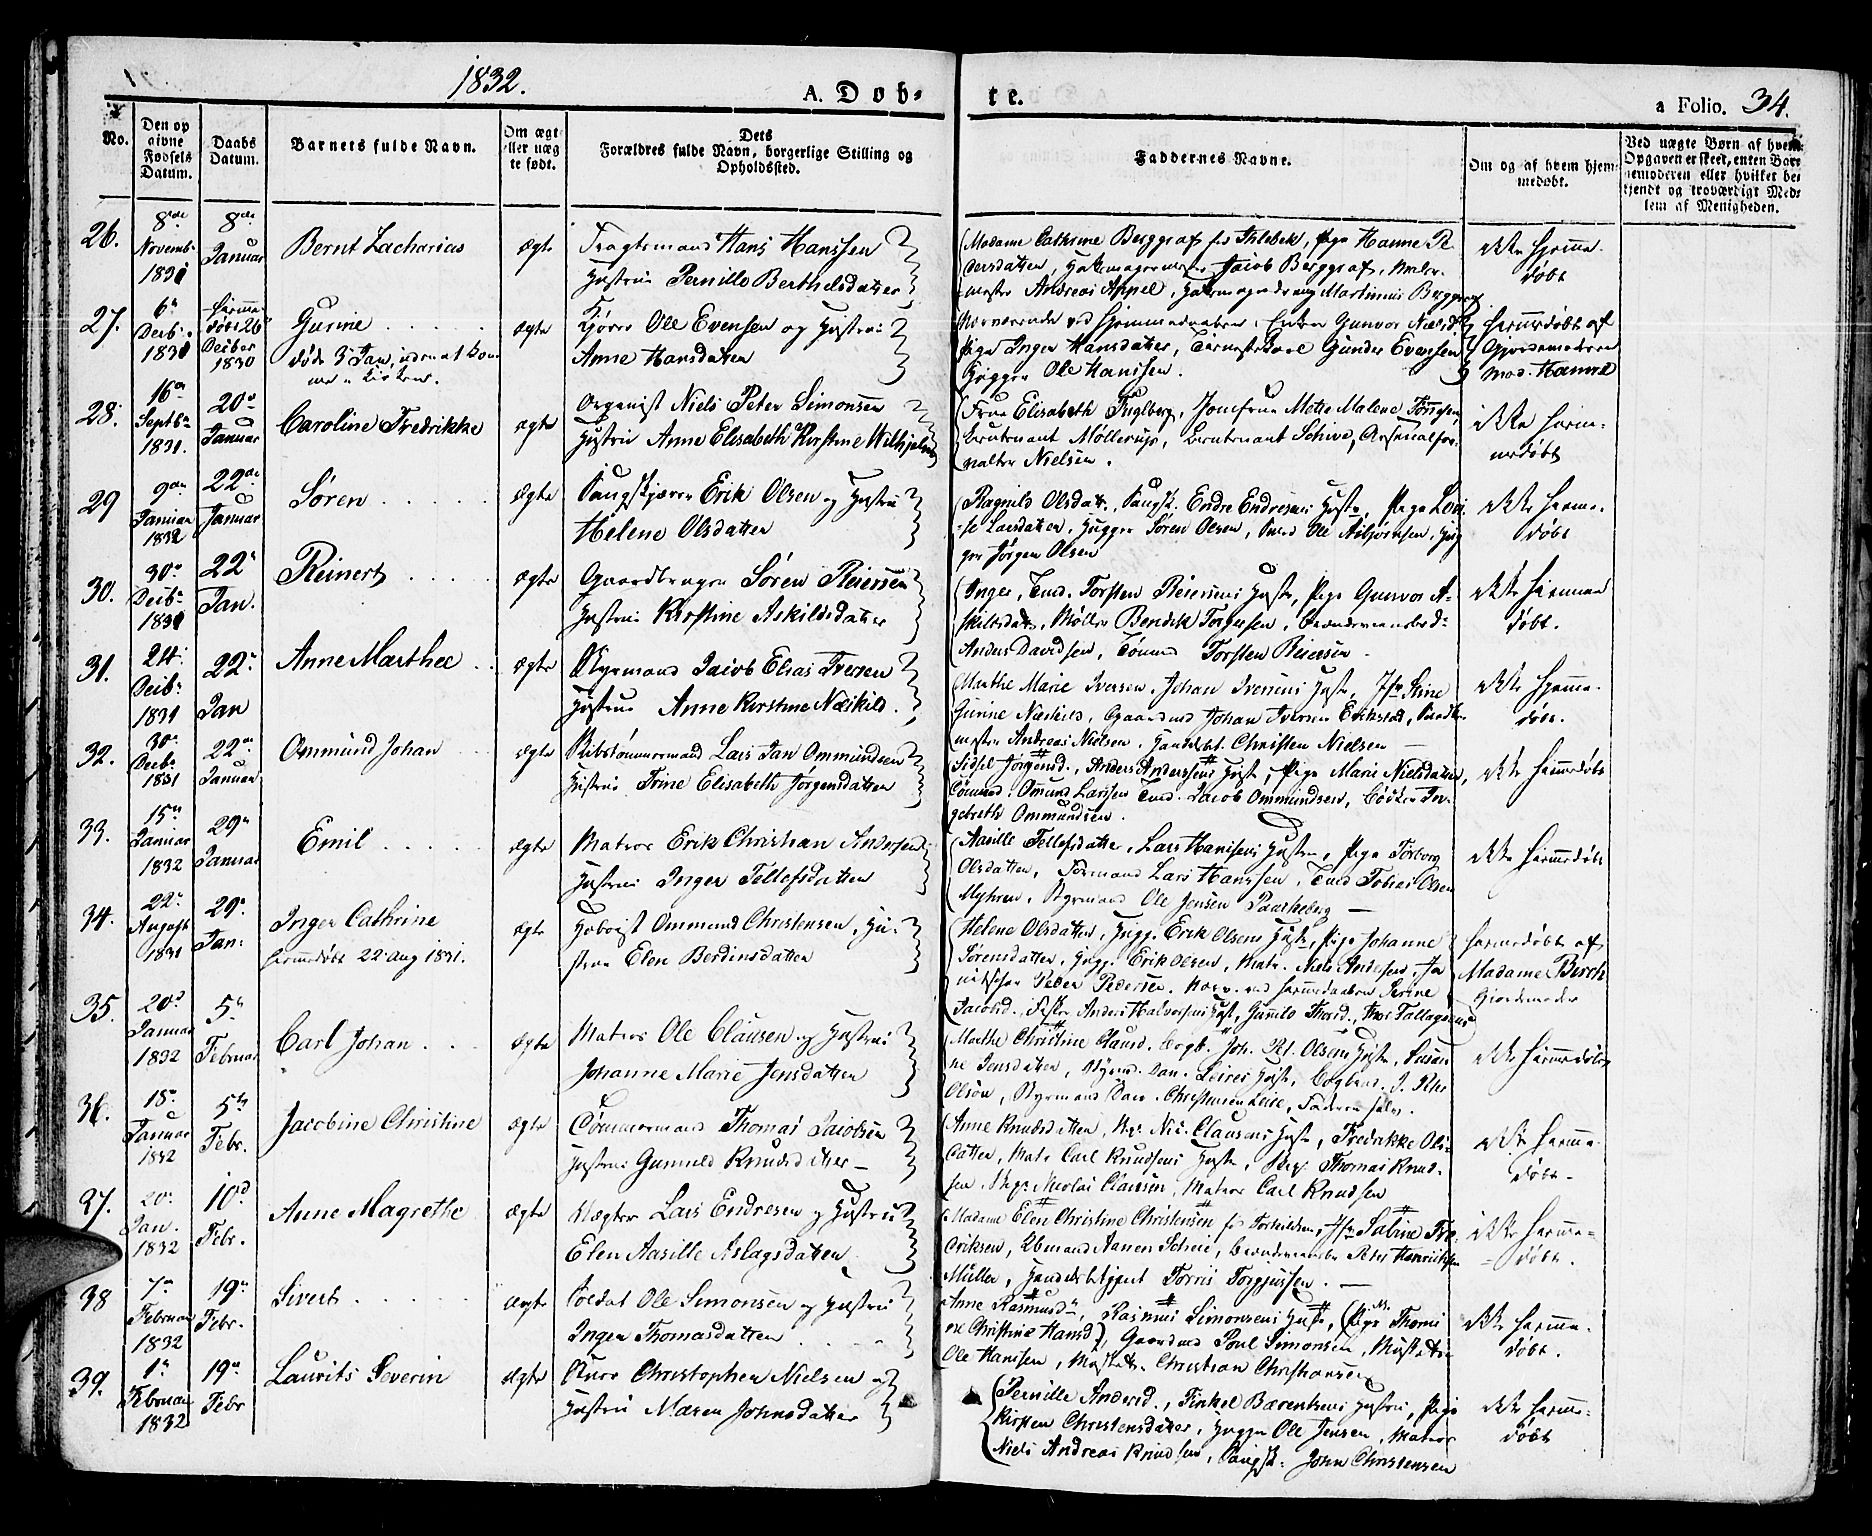 1832.
A. Døb-
te.
a Folio. 34.
No.
Den op
givne
Fødsels
Datum.
Daabs
Datum.
Barnets fulde Navn.
Om ægt
eller uæg
te født.
Dets
Forældres fulde Navn, borgerlige Stilling og
Opholdssted.
Faddernes Navne.
Om og af hvem hjem-
medøbt.
Ved uægte Børn af hvem
Opgaven er skeet, enten Bar-
nemoderen eller hvilket be-
kjendt og troværdigt Med-
lem af Menigheden.
26.
8de
Novemb.
1831
8de
Januar
Bernt Zacharias
ægte
Hans Hanssen
Hustrue Pernille Berthelsdatter
Madame Cathrine Berggraf, Pige Hanne Pe-
dersdatter, Jacob Berggraf,
Andreas Appel, Martinius Berggraf
ikke hjemme-
døbt
27.
6te
Decb.
1831
hjemme
døbt 26
Decber
1830
Gurine
døde 3 Jan, uden at kom
me i Kirken.
ægte
Kjører Ole Evensen og Hustrue
Anne Hansdatter
Nærværende ved Hjemmedaaben, Enken Gunvor
Pige Inger Hansdatter, Gunder Evensen
Hugger Ole Hansen.
hjemmedøbt af
Gjordemoderen
Mad.
28.
16de
Septbr
1831.
20de
Januar
Caroline Fredrikke
ægte
Organist Niels Peter Simonsen
Hustrue Anne Elisabeth Kirstine Wilhjelm
Frue Elisabeth Fuglberg, Jomfrue Mette Malene
Lieutenant Møllerup, Lieutenant Schive, Arsenalfor-
valter Nielsen.
ikke hjem-
medøbt
29
9de
Januar
1832
22de
Januar
Søren
ægte
Saugskjærer Erik Olsen og Hustrue
Helene Olsdatter
Ragnild Olsdat., Saugsk. Endre Endresens Hust., Pige Loui-
se Larsdatter, Hugger Søren Olsen, Ole Asbjørnsen, Hug
ger Jørgen Olsen
ikke hjemme-
døbt
30.
30te
Decbr
1831
22de
Jan.
Reinert
ægte
Gaardbruger Søren Reiersen
Hustrue Kirstine Askildsdatter
Inger, Tømd. Torsten Reiersens Hust., Pige Gunvor A-
skildsdat., Møller Bendik Torgersen,
Anders Davidsen, Torsten Reiersen
ikke hjemme
døbt.
31.
24de
Decbr
1831
22de
Jan
Anne Marthee
ægte
Styrmand Jacob Elias Iversen
Hustrue Anne Kirstine Næskild.
Marthe Marie Iversen, Johan Iversens Hust., Jfr Stine
Gurine Næskild, Gaardmd Johan Iversen
Andreas Nielsen, Christen Nielsen
ikke hjemme-
døbt.
32.
30te
Decbr
1831
22de
Januar
Ommund Johan
ægte
Skibstømmermand Lars Jan Ommundsen
Hustrue Trine Elisabeth Jørgensdatter
Sidsel Jørgensd., Anders Anderssens Hust., Pige Marie Nielsdatter,
Tømmd. Omund Larssen Tømd. Jacob Ommundsen, In-
gebreth Ommundsen.
ikke hjemmedøbt
33.
15de
Januar
1832
29de
Januar
Emil
ægte
Matros Erik Christian Andersen
Hustrue Inger Tellefsdatter
Aasille Tellefsdatter, Lars Hansens Hustrue, Pige Torborg
Olsdatter, Lars Hanssen, Tobias Olsen
Myhren, Styrmand Ole Jensen
ikke hjemmedøbt
34.
22de
August
1831
29de
Jan:
Inger Cathrine
hjemmedøbt 22 Aug 1831.
ægte
Hoboist Ommund Christensen, Hu-
strue Elen Berdinsdatter
Helene Olsdatter, Hugg. Erik Olsens Hust., Pige Johanne
Sørensdatter, Hugg. Erik Olsen, Matr. Niels Andersen, Ja
nitschar Peder Pedersen. Nærv. ved hjemmedaaben Serine
Jacobsd., Anders Halvorsens Hust.,
hjemmedøbt af
Madame Birch
Gjordemoder
35.
20de
Januar
1832
5te
Februar
Carl Johan
ægte
Matros Ole Clausen og Hustrue
Johanne Marie Jensdatter
Marthe Christine Clausd. Joh. Pt. Olsens Hust., Susan
ne Jensdatter, Leires Hust.,
Olsen, Styrmand Christensen Leire, Faderen selv.
ikke hjemmedøbt
36.
18de
Januar
1832
5te
Febr.
Jacobine Christine
ægte
Tømmermand Thomas Jacobsen
Hustrue Gunnild Knudsdatter
Anne Knudsdatter, Nic. Clausens Hust., Fredrikke Ols-
datter, Matr Carl Knudsens Hust., Thomas Knud-
sen, Nicolai Clausen, Matros Carl Knudsen
ikke hjemme-
døbt.
37.
20de
Jan.
1832
10de
Febr.
Anne Magrethe
ægte
Vægter Lars Endresen og Hustrue
Elen Aasille Aslagsdatter
Madame Elen Christine Christensen, Jfr Sabine Fre-
driksen, Aanen Scheie, Peter Henrichsen
Müller, Torris Torgjussen.
ikke hjemme-
døbt.
38
7de
Februar
1832
19de
Febr.
Sivert
ægte
Soldat Ole Simonsen og Hustrue
Inger Thomasdatter
Anne Rasmusdr, Rasmus Simonsens Hust., (Pige Thomi
ne Christine Hansd), Gaardmd Poul Simonsen,
Ole Hansen, Christian Christiansen
ikke hjemme-
døbt.
39.
1de
Februar
1832
19de
Febr
Laurits Severin
ægte
Christopher Nielsen og
Hustrue Maren Johnsdatter
Pernille Andersd., Finkel Barentsens Hustrue, Pige
Kirsten Christensdatter, Hugger Ole Jensen, Matros
Niels Andreas Knudsen, Saugsk. John Christensen
ikke hjemme-
døbt